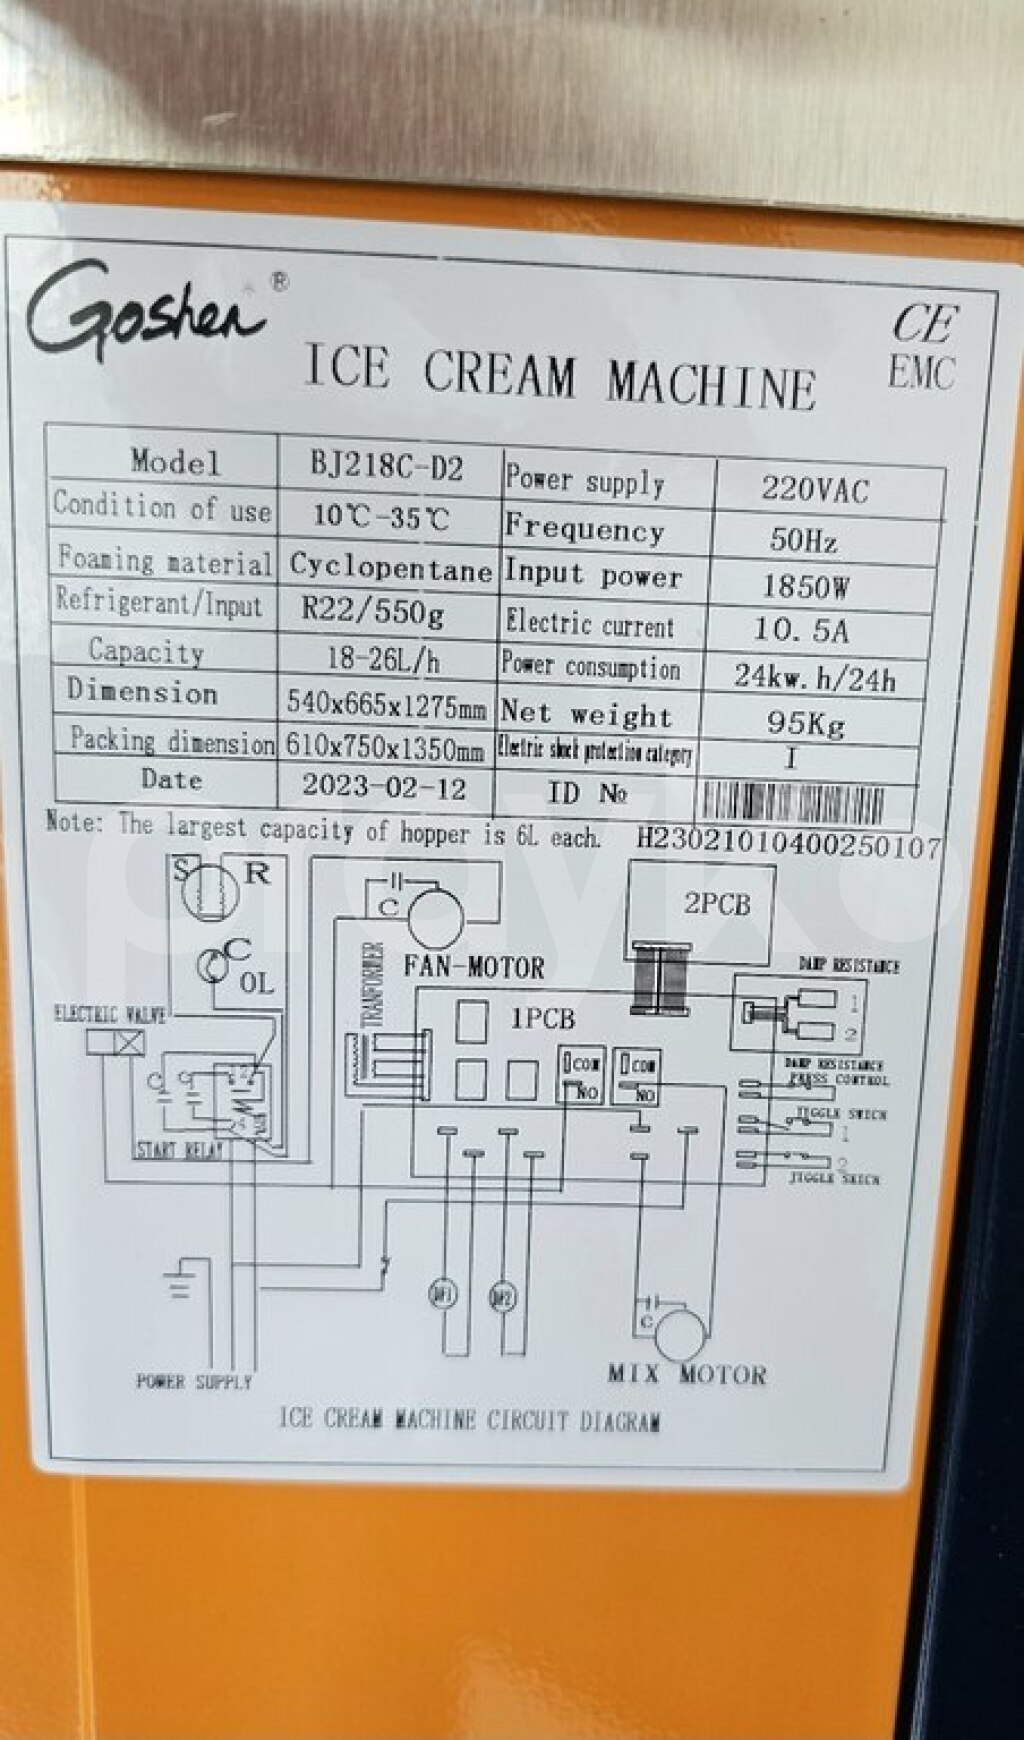 Goshen ®
CE
EMC
ICE CREAM MACHINE
Model BJ218C-D2 Power supply 220VAC
Condition of use 10℃-35℃ Frequency 50Hz
Foaming material Cyclopentane Input power 1850W
Refrigerant/Input R22/550g Electric current 10.5A
Capacity 18-26L/h Power consumption 24kw.h/24h
Dimension 540x665x1275mm Net weight 95Kg
Packing dimension 610x750x1350mm Electric shock protection category I
Date 2023-02-12 ID №
Note: The largest capacity of hopper is 6L each. H23021010400250107
S R
C
OL
C
FAN-MOTOR
TRANFORMER
2PCB
1PCB
DAMP RESISTANCE
1
2
DAMP RESISTANCE
ELECTRIC VALVE
COM
NO
COM
NO
PRESS CONTROL
JIGGLE SWICH
1
2
JIGGLE SWICH
C C
START RELAY
POWER SUPPLY
C
MIX MOTOR
ICE CREAM MACHINE CIRCUIT DIAGRAM